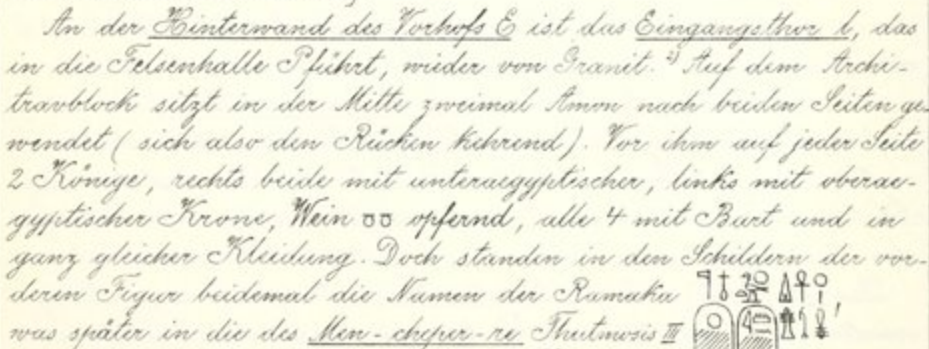 An der Hinterwand des Vorhofs E ist das Eingangsthor l, das
in die Felsenhalle P führt, wieder von Granit. 2) Auf dem Archi-
travblock sitzt in der Mitte zweimal Amon nach beiden Seiten ge-
wendet (sich also den Rücken kehrend). Vor ihm auf jeder Seite
2 Könige, rechts beide mit unteraegyptischer, links mit oberae-
gyptischer Krone, Wein opfernd, alle 4 mit Bart und in
ganz gleicher Kleidung. Doch standen in den Schildern der vor-
deren Figur beidemal die Namen der Ramaka
was später in die des Men-cheper-re Thutmosis III